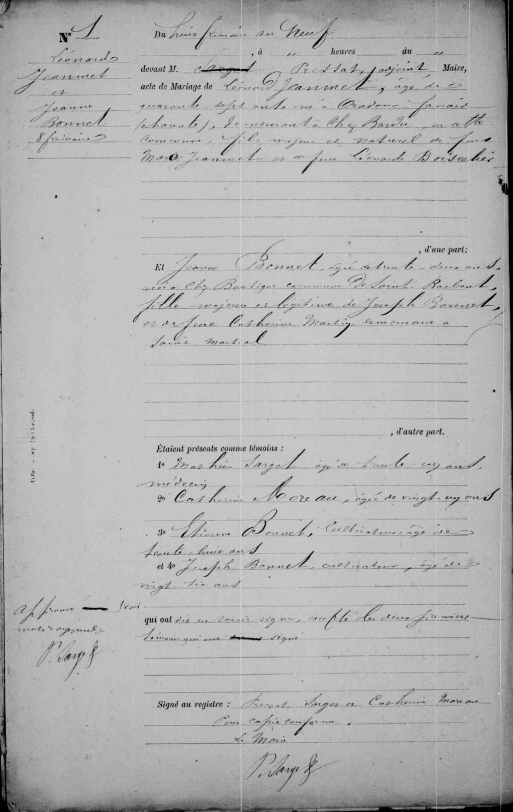 N° 1
Léonard
Jeannet
et
Jeanne
Bonnet
8 frimaire
Du huit frimaire an neuf
, à " heures du "
devant M. Pressat, adjoint Maire,
acte de Mariage de Léonard Jeannet, âgé de
quarante sept ans né à Oradour fanais
(charente), demeurant à Chez Bardu, en cette
commune, fils majeur et naturel de feu
Marc Jeannet et de feue Léonarde
, d'une part;
Et Jeanne Bonnet, âgée de trente deux ans,
née à Chez Boutique commune de Saint Barbant,
fille majeure et légitime de Joseph Bonnet,
et de feue Catherine Martin demeurant à
Saint Martial
, d'autre part.
Étaient présents comme témoins :
1° Mathieu Sarget âgé de trente cinq ans,
médecin
2° Catherine Moreau, âgée de vingt cinq ans
3° Etienne Bonnet, cultivateur, âgé de
trente huit ans
et 4° Joseph Bonnet, cultivateur, âgé de
vingt six ans
qui ont dit ne savoir signer, excepté les deux premiers
témoins qui ont signé
approuvé trois
mots rayés nuls
P. Sarget
Signé au registre : Pressat, Sarget et Catherine Moreau
Pour copie conforme.
Le Maire
P. Sarget